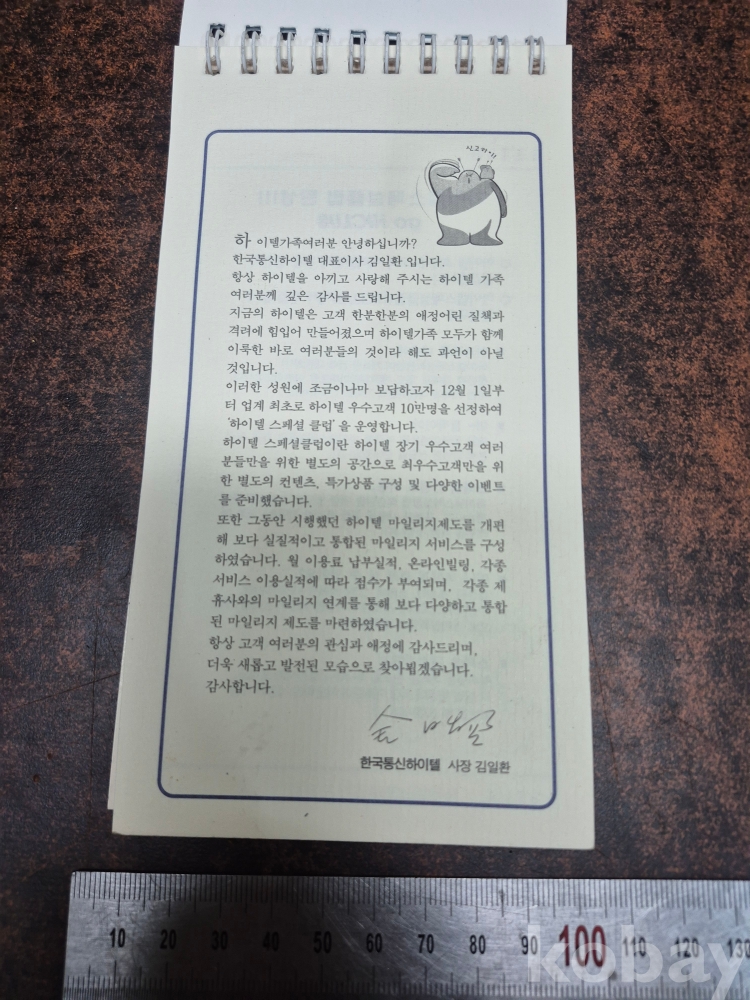 신고합니다!!
하이텔가족여러분 안녕하십니까?
한국통신하이텔 대표이사 김일환 입니다.
항상 하이텔을 아끼고 사랑해 주시는 하이텔 가족
여러분께 깊은 감사를 드립니다.
지금의 하이텔은 고객 한분한분의 애정어린 질책과
격려에 힘입어 만들어졌으며 하이텔가족 모두가 함께
이룩한 바로 여러분들의 것이라 해도 과언이 아닐
것입니다.
이러한 성원에 조금이나마 보답하고자 12월 1일부
터 업계 최초로 하이텔 우수고객 10만명을 선정하여
'하이텔 스페셜 클럽' 을 운영합니다.
하이텔 스페셜클럽이란 하이텔 장기 우수고객 여러
분들만을 위한 별도의 공간으로 최우수고객만을 위
한 별도의 컨텐츠, 특가상품 구성 및 다양한 이벤트
를 준비했습니다.
또한 그동안 시행했던 하이텔 마일리지제도를 개편
해 보다 실질적이고 통합된 마일리지 서비스를 구성
하였습니다. 월 이용료 납부실적, 온라인빌링, 각종
서비스 이용실적에 따라 점수가 부여되며, 각종 제
휴사와의 마일리지 연계를 통해 보다 다양하고 통합
된 마일리지 제도를 마련하였습니다.
항상 고객 여러분의 관심과 애정에 감사드리며,
더욱 새롭고 발전된 모습으로 찾아뵙겠습니다.
감사합니다.
한국통신하이텔 사장 김일환
10 20 30 40 50 60 70 80 90 100 110 120 130
kobay